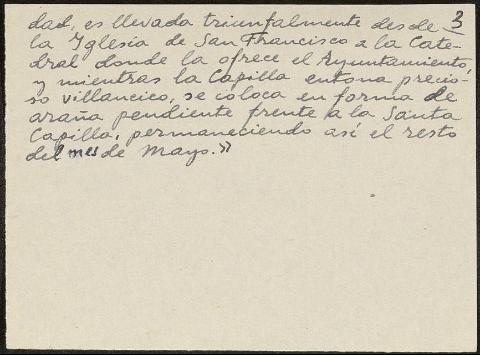 dad, es llevada triunfalmente desde 3
la Iglesia de San Francisco a la Cate-
dral donde la ofrece el Ayuntamiento,
y mientras la Capilla entona precio-
so villancico, se coloca en forma de
araña pendiente frente a la Santa
Capilla, permaneciendo así el resto
del mes de Mayo.»